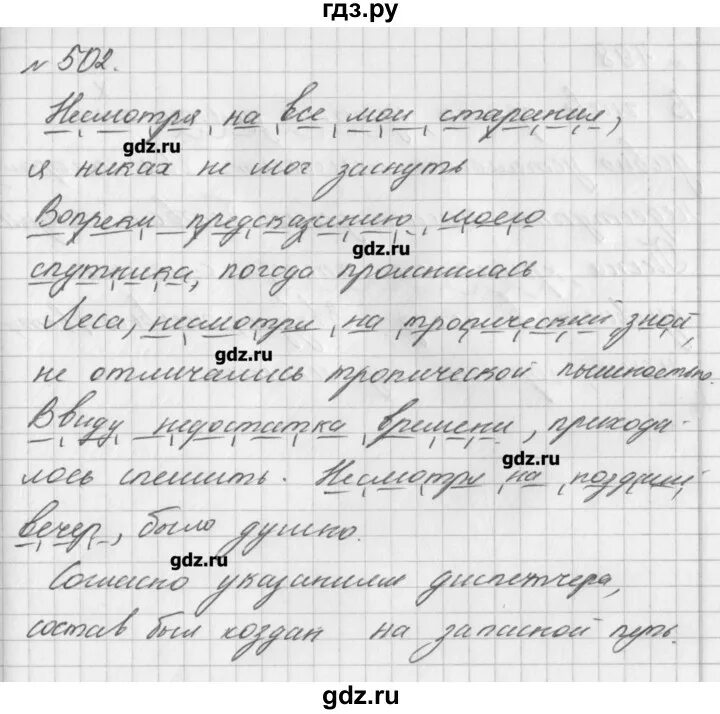 гдз.ру
№ 502.
Несмотря на все мои старания,
gdz.ru
я никак не мог заснуть
Вопреки предсказанию моего
gdz.ru
спутника, погода прояснилась
Леса, несмотря на тропический зной,
gdz.ru
не отличались тропической пышностью.
Ввиду недостатка времени, приходи-
gdz.ru
лось спешить. Несмотря на поздний
вечер, было душно.
gdz.ru
Согласно указаниям диспетчера,
состав был подан на запасной путь.
gdz.ru